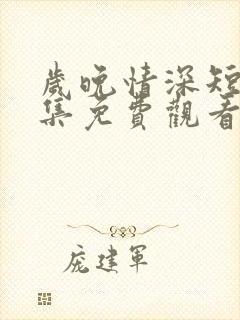 歲晩情深短
集免費觀看
庞建軍